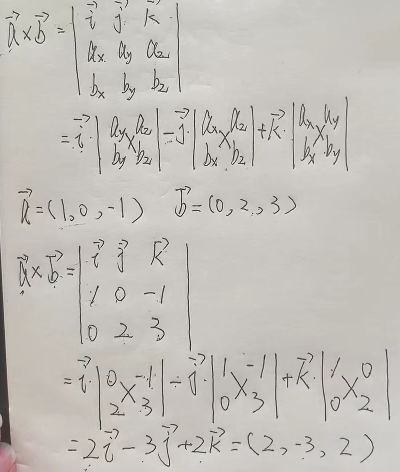 a⃗×b⃗ = | i⃗ j⃗ k⃗ |
| aₓ a_y a_z |
| bₓ b_y b_z |
= i⃗·| a_y a_z ; b_y b_z | − j⃗·| aₓ a_z ; bₓ b_z | + k⃗·| aₓ a_y ; bₓ b_y |
a⃗ = (1, 0, -1) b⃗ = (0, 2, 3)
a⃗×b⃗ = | i⃗ j⃗ k⃗ |
| 1 0 -1 |
| 0 2 3 |
= i⃗·| 0 -1 ; 2 3 | − j⃗·| 1 -1 ; 0 3 | + k⃗·| 1 0 ; 0 2 |
= 2i⃗ − 3j⃗ + 2k⃗ = (2, -3, 2)